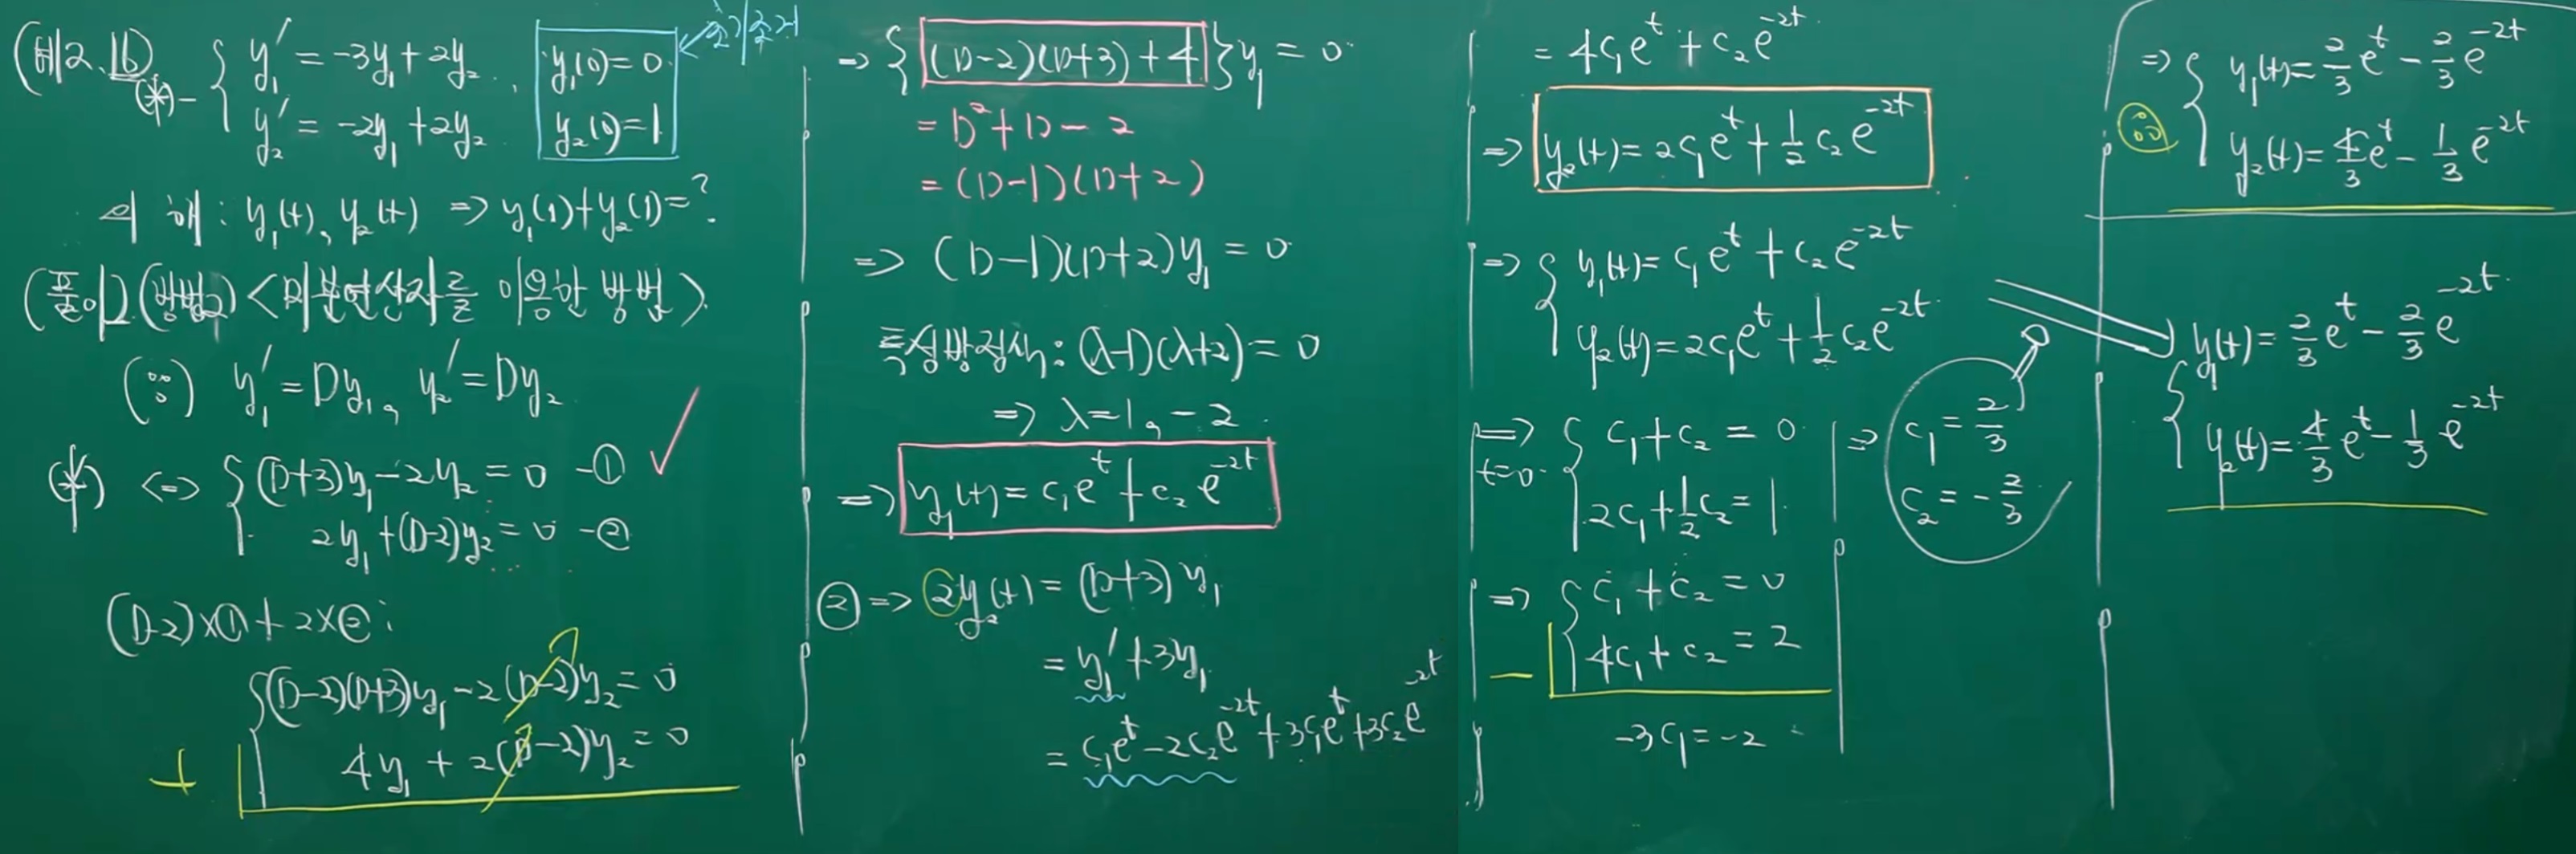 (예 2.16)
(*)- { y₁' = -3y₁ + 2y₂ , y₁(0) = 0
y₂' = -2y₁ + 2y₂ y₂(0) = 1
초기조건
의 해 : y₁(t), y₂(t) ⇒ y₁(1) + y₂(1) = ?
(풀이) (방법2) <미분연산자를 이용한 방법>
(∵) y₁' = Dy₁, y₂' = Dy₂
(*) ⇔ { (D+3)y₁ - 2y₂ = 0 -①
2y₁ + (D-2)y₂ = 0 -②
(D-2)×① + 2×② :
{ (D-2)(D+3)y₁ - 2(D-2)y₂ = 0
+ 4y₁ + 2(D-2)y₂ = 0
⇒ { (D-2)(D+3) + 4 } y₁ = 0
= D² + D - 2
= (D-1)(D+2)
⇒ (D-1)(D+2)y₁ = 0
특성방정식 : (λ-1)(λ+2) = 0
⇒ λ = 1, -2
⇒ y₁(t) = c₁eᵗ + c₂e⁻²ᵗ
② ⇒ 2y₂(t) = (D+3)y₁
= y₁' + 3y₁
= c₁eᵗ - 2c₂e⁻²ᵗ + 3c₁eᵗ + 3c₂e⁻²ᵗ
= 4c₁eᵗ + c₂e⁻²ᵗ
⇒ y₂(t) = 2c₁eᵗ + 1/2 c₂e⁻²ᵗ
⇒ { y₁(t) = c₁eᵗ + c₂e⁻²ᵗ
y₂(t) = 2c₁eᵗ + 1/2 c₂e⁻²ᵗ
⇒ t=0 { c₁ + c₂ = 0
2c₁ + 1/2 c₂ = 1
⇒ { c₁ + c₂ = 0
- 4c₁ + c₂ = 2
-3c₁ = -2
⇒ c₁ = 2/3
c₂ = -2/3
⇒ { y₁(t) = 2/3 eᵗ - 2/3 e⁻²ᵗ
y₂(t) = 4/3 eᵗ - 1/3 e⁻²ᵗ
{ y₁(t) = 2/3 eᵗ - 2/3 e⁻²ᵗ
y₂(t) = 4/3 eᵗ - 1/3 e⁻²ᵗ